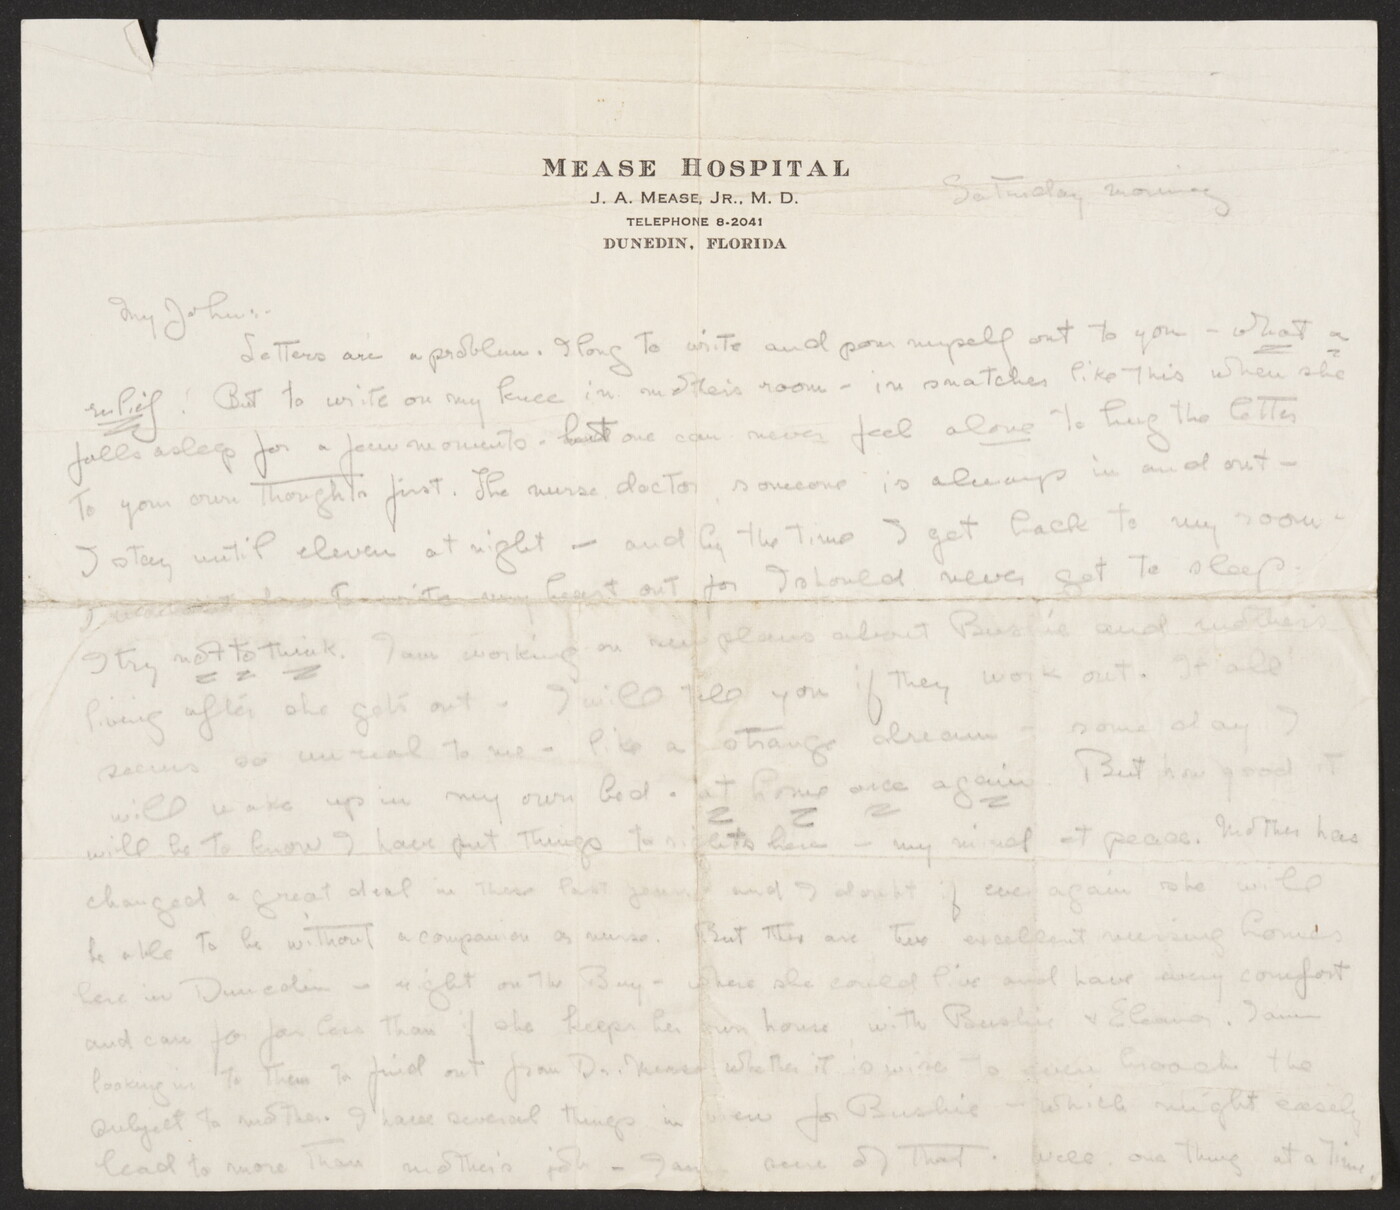 MEASE HOSPITAL
J. A. MEASE, JR., M. D.
TELEPHONE 8-2041
DUNEDIN, FLORIDA
Saturday morning
My John:-
Letters are a problem. I long to write and pour myself out to you - what a
relief! But to write on my knee in mother's room - in snatches like this when she
falls asleep for a few moments - but one can never feel alone to hug the letter
to your own thoughts first. The nurse, doctor, someone is always in and out -
I stay until eleven at night - and by the time I get back to my room -
I to write my heart out for I should never get to sleep.
I try not to think. I am working on new plans about Bushie and mother's
living after she gets out - I will tell you if they work out. It all
seems so unreal to me - like a strange dream - some day I
will wake up in my own bed - at home once again. But how good it
will be to know I have put things to rights here - my mind at peace. Mother has
changed a great deal in these last years and I doubt if ever again she will
be able to be without a companion or nurse. But there are two excellent nursing homes
here in Dunedin - right on the Bay - where she could live and have every comfort
and care for far less than if she keeps her own house with Bushie & Eleanor. I am
looking in to them to find out from Dr. Mease whether it is wise to even broach the
subject to mother. I have several things in view for Bushie - which might easily
lead to more than mother's job - I am sure of that. Well, one thing at a time.